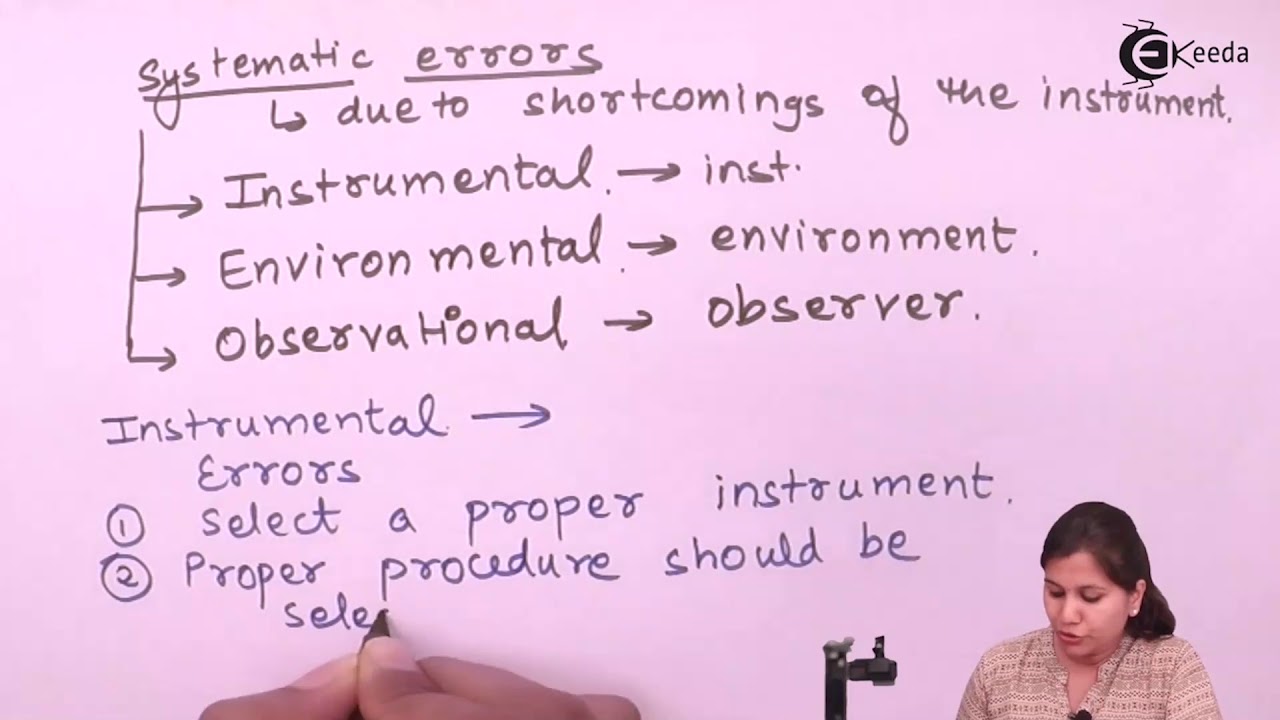 Systematic errors
EKeeda
↳ due to shortcomings of the instrument.
→ Instrumental. → inst.
→ Environmental. → environment.
→ Observational → observer.
Instrumental →
Errors
① Select a proper instrument.
② Proper procedure should be
sele